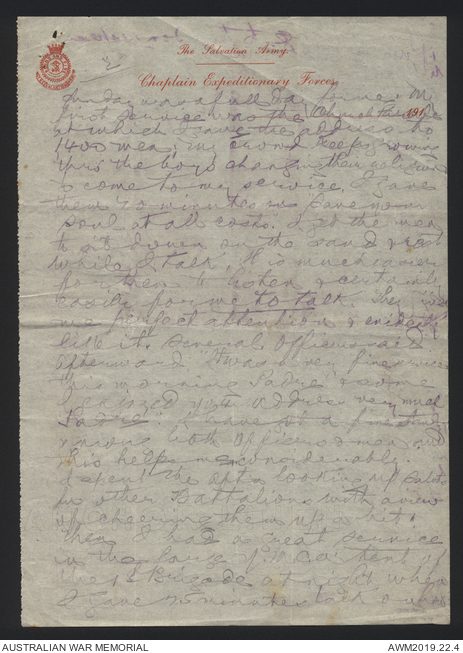 The Salvation Army.
Chaplain Expeditionary Forces
191
Sunday was a full day
first service was the Church Parade
at which I gave the address to
1400 men; my crowd keeps growing
the boys change their
to come to my service. I gave
them 20 minutes on
soul at all costs. I get the men
to sit down on the sand & rest
while I talk, it is much easier
for them to listen & certainly
easily for me to talk. They
me perfect attention & evidently
like it. Several Officers said
afterward "It was a very fine
this morning Padre" & some
enjoyed your address very much
Padre". I have got a fine
both Officers & men and
this helps me considerably.
I spent the aft looking up Salvts
in other Battalions with a view
of cheering them up a bit.
Then I had a great service
in the lines of
the 1st Brigade at night when
I gave 25 minutes talk
AUSTRALIAN WAR MEMORIAL
AWM2019.22.4